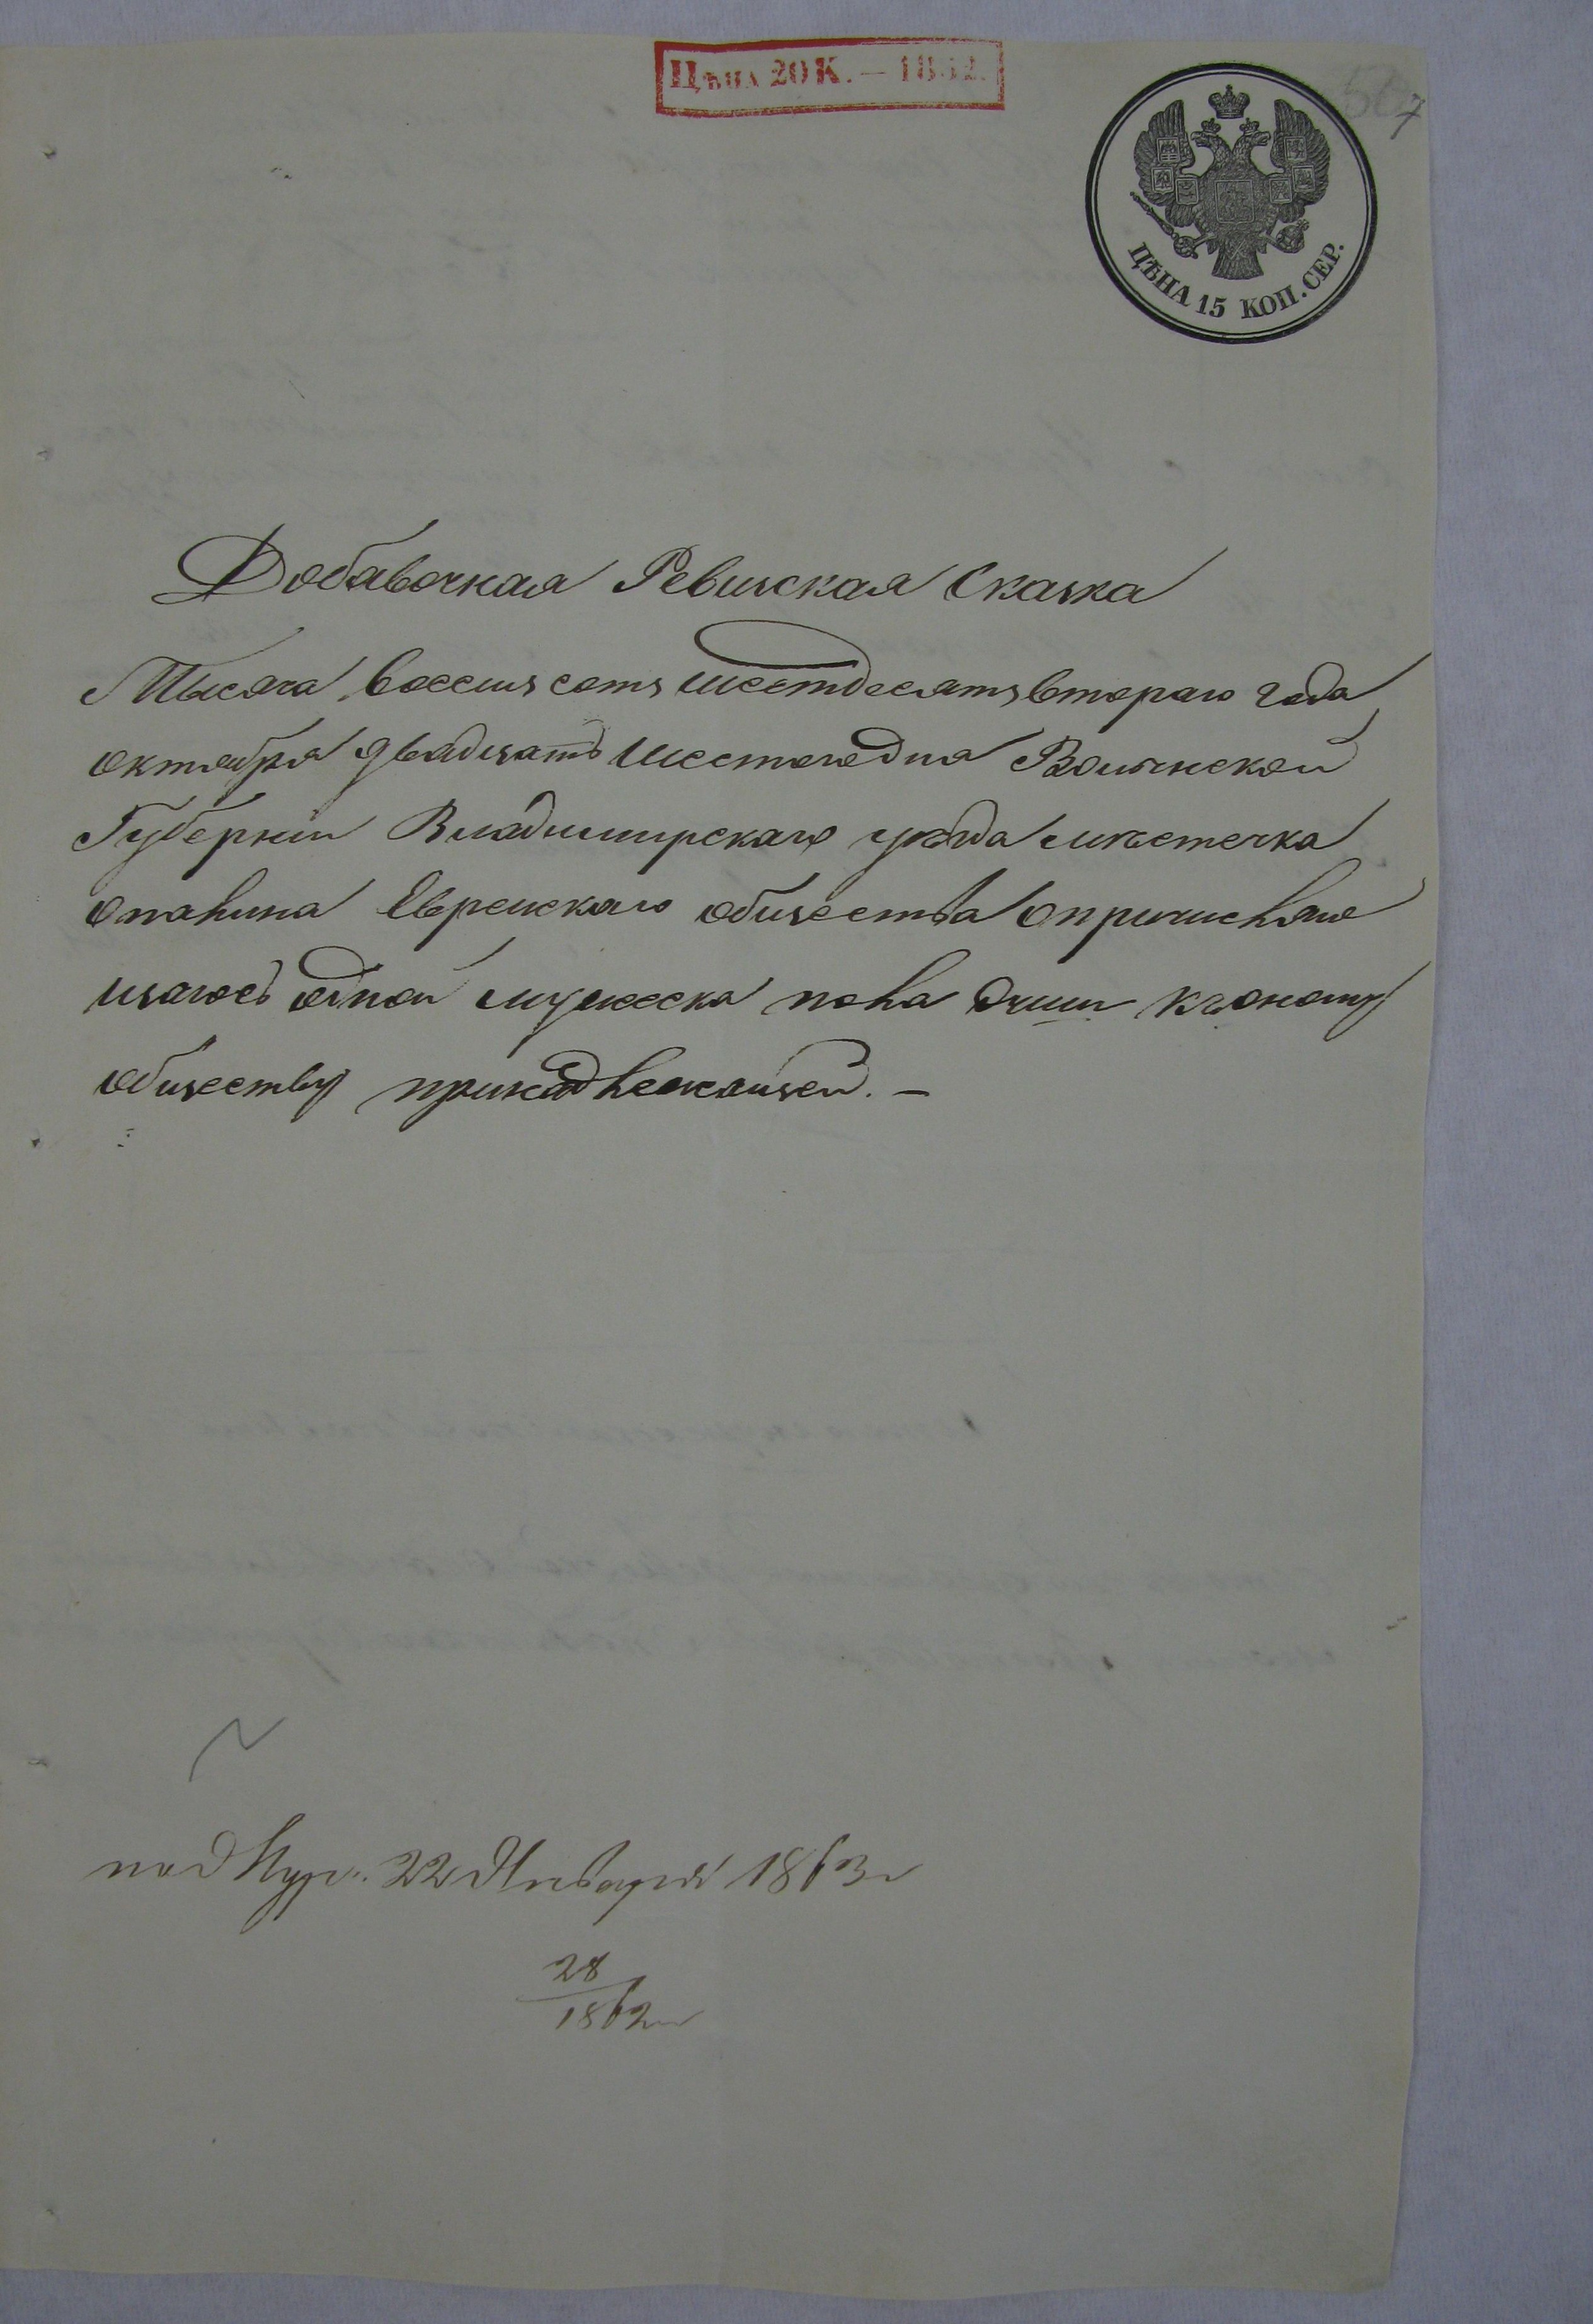 Цѣна 20 К. — 1862.
7
ЦѢНА 15 КОП. СЕР.
Добавочная Ревизская Сказка
Тысяча восемь сотъ шестдесятъ втораго года
октября двадцать шестого дня Волынской
Губерніи Владимирскаго уѣзда мѣстечка
Опалина Еврейскаго общества о причисляю
щагось одной мужеска пола души къ оному
обществу принадлежащей. —
22 Января 1863 г
28
1862 г